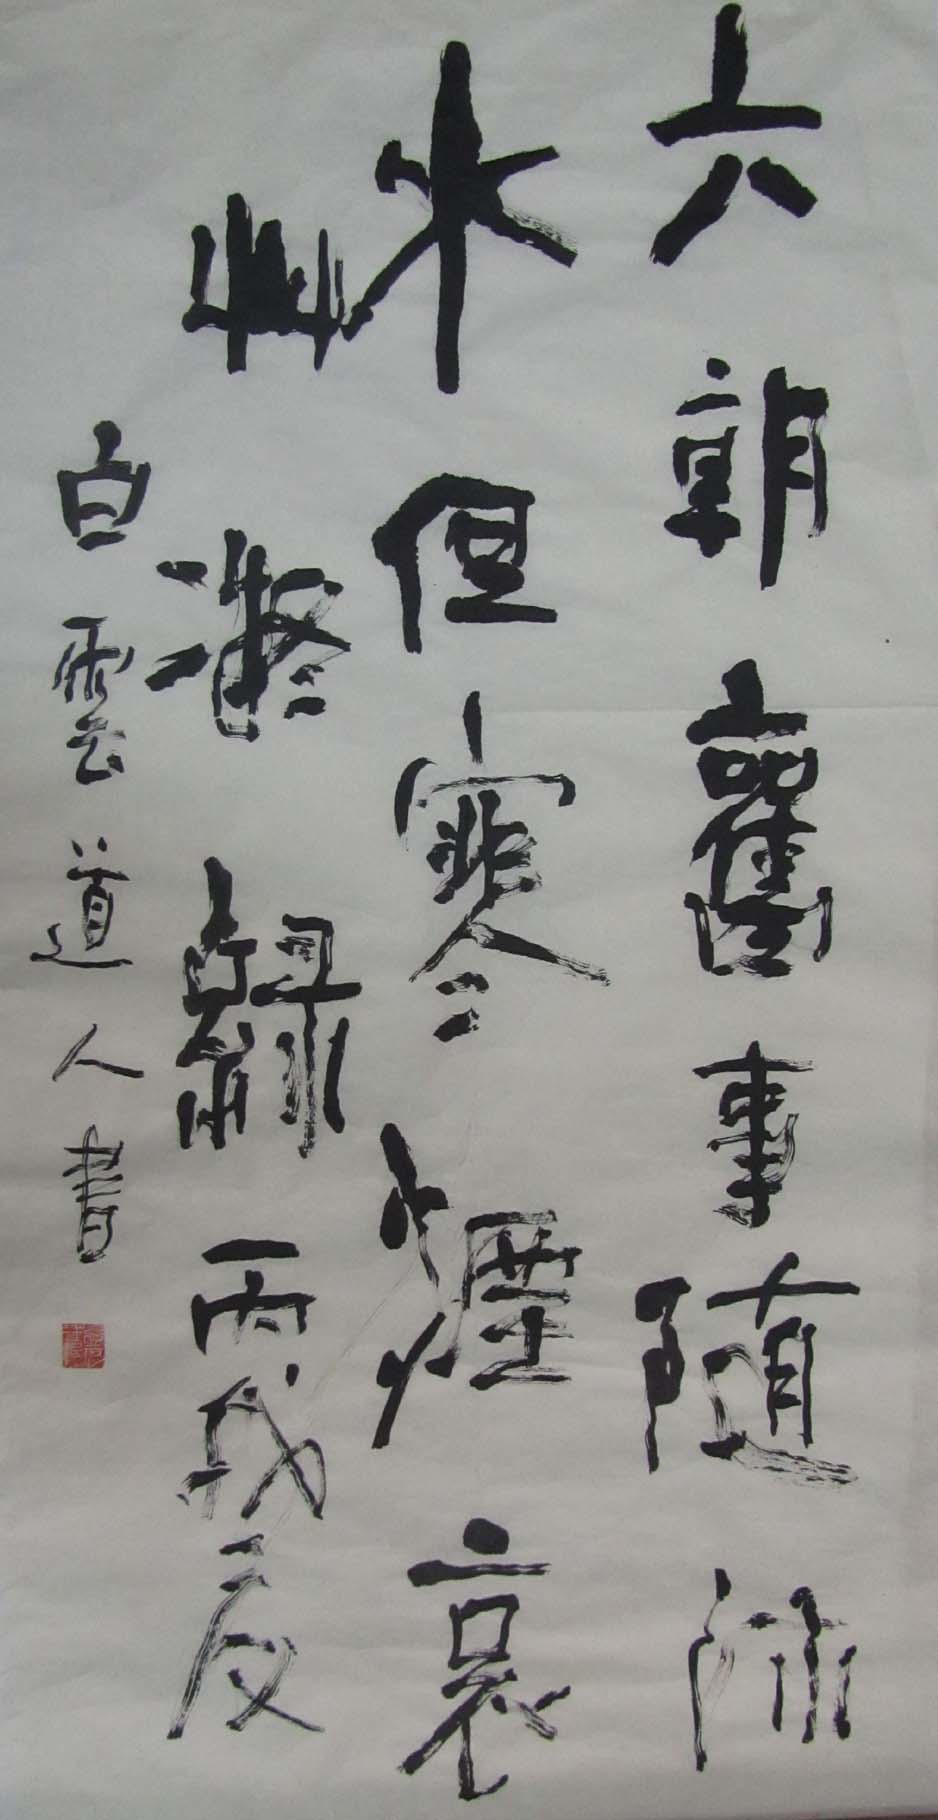 六朝舊事隨流
水但寒煙衰
艸凝綠丙戌夏
白雲道人書